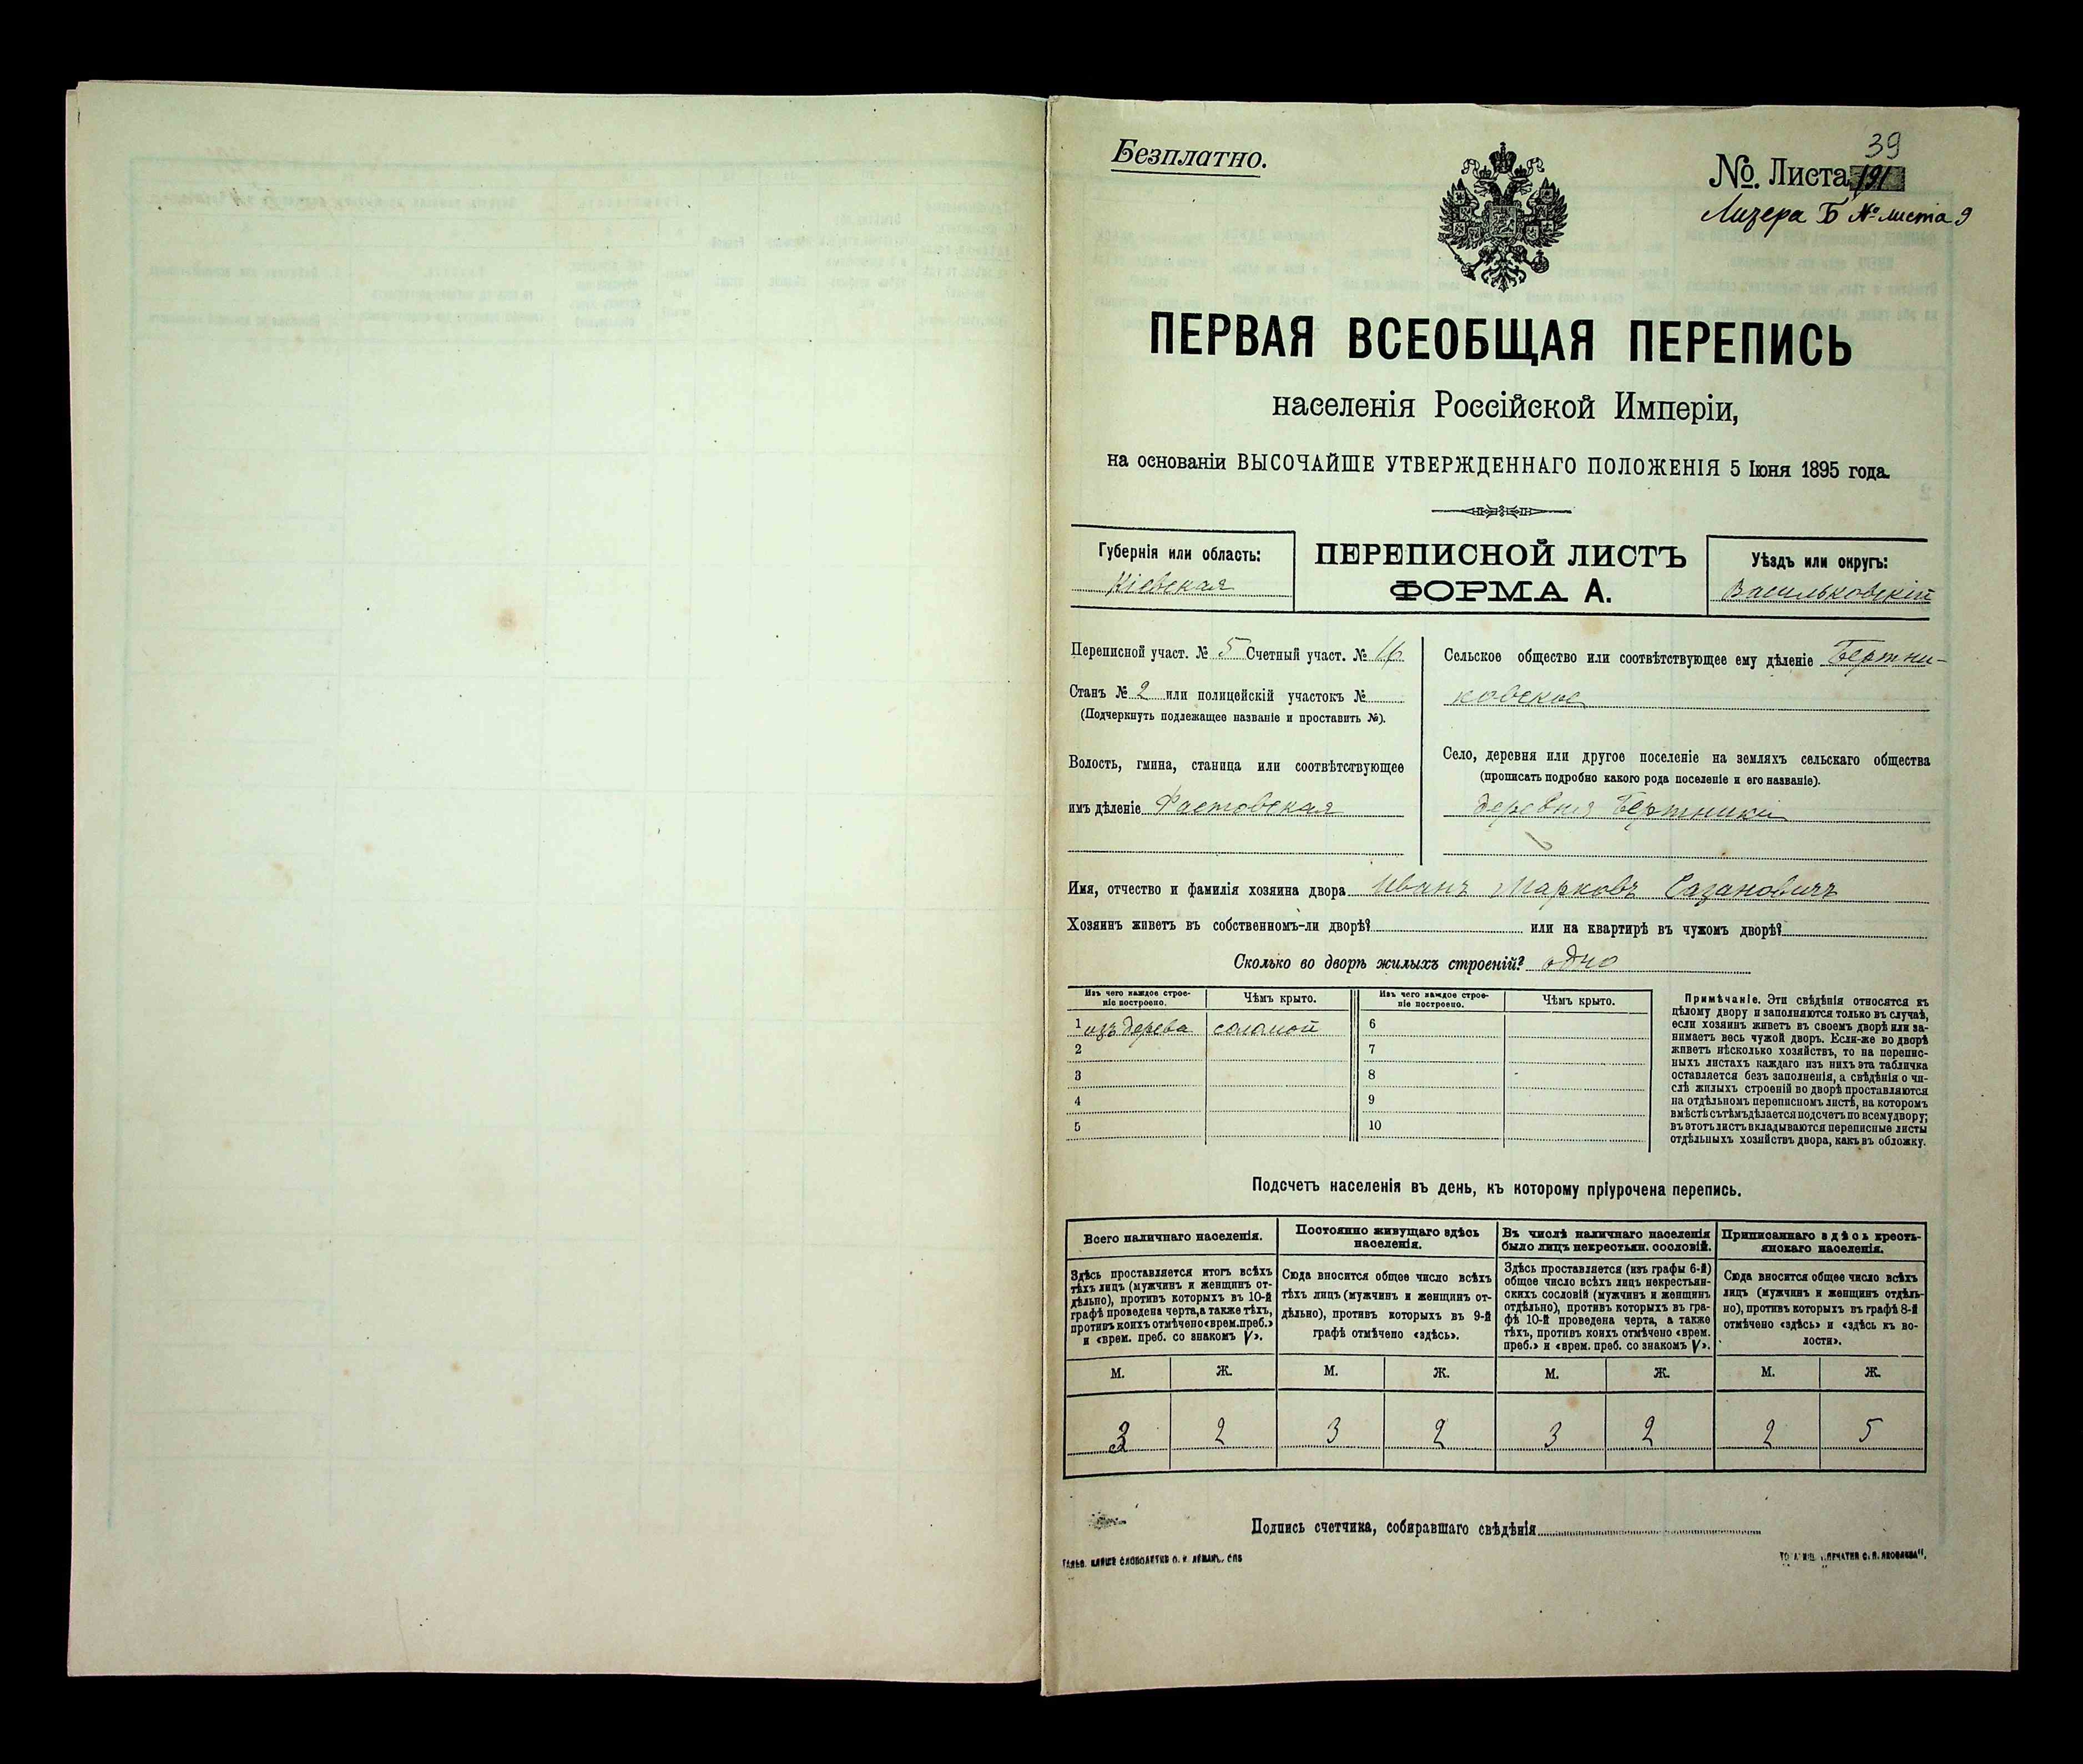 Безплатно.
39
№. Листа 191
Б № листа 9
ПЕРВАЯ ВСЕОБЩАЯ ПЕРЕПИСЬ
населенія Россійской Имперіи,
на основаніи ВЫСОЧАЙШЕ УТВЕРЖДЕННАГО ПОЛОЖЕНІЯ 5 Іюня 1895 года.
Губернія или область:
Кіевская
ПЕРЕПИСНОЙ ЛИСТЪ
ФОРМА А.
Уѣздъ или округъ:
Васильковскій
Переписной участ. № 5 Счетный участ. № 16
Станъ № 2 или полицейскій участокъ №
(Подчеркнуть подлежащее названіе и проставить №).
Волость, гмина, станица или соотвѣтствующее
имъ дѣленіе Фастовская
Сельское общество или соотвѣтствующее ему дѣленіе Бертни-
ковское
Село, деревня или другое поселеніе на земляхъ сельскаго общества
(прописать подробно какого рода поселеніе и его названіе).
деревня Бертники
Имя, отчество и фамилія хозяина двора Иванъ Марковъ Сазановичъ
Хозяинъ живетъ въ собственномъ-ли дворѣ? или на квартирѣ въ чужомъ дворѣ?
Сколько во дворѣ жилыхъ строеній? одно
Изъ чего каждое строе-
ніе построено.
Чѣмъ крыто.
Изъ чего каждое строе-
ніе построено.
Чѣмъ крыто.
1 изъ дерева соломой 6
2 7
3 8
4 9
5 10
Примѣчаніе. Эти свѣдѣнія относятся къ
цѣлому двору и заполняются только въ случаѣ,
если хозяинъ живетъ въ своемъ дворѣ или за-
нимаетъ весь чужой дворъ. Если-же во дворѣ
живетъ нѣсколько хозяйствъ, то на перепис-
ныхъ листахъ каждаго изъ нихъ эта табличка
оставляется безъ заполненія, а свѣдѣнія о чи-
слѣ жилыхъ строеній во дворѣ проставляются
на отдѣльномъ переписномъ листѣ, на которомъ
вмѣстѣ съ тѣмъ дѣлается подсчетъ по всему двору;
въ этотъ листъ вкладываются переписные листы
отдѣльныхъ хозяйствъ двора, какъ въ обложку.
Подсчетъ населенія въ день, къ которому пріурочена перепись.
Всего наличнаго населенія.
Здѣсь проставляется итогъ всѣхъ
тѣхъ лицъ (мужчинъ и женщинъ от-
дѣльно), противъ которыхъ въ 10-й
графѣ проведена черта, а также тѣхъ,
противъ коихъ отмѣчено «врем. преб.»
и «врем. преб. со знакомъ V».
Постоянно живущаго здѣсь
населенія.
Сюда вносится общее число всѣхъ
тѣхъ лицъ (мужчинъ и женщинъ от-
дѣльно), противъ которыхъ въ 9-й
графѣ отмѣчено «здѣсь».
Въ числѣ наличнаго населенія
было лицъ некрестьян. сословій.
Здѣсь проставляется (изъ графы 6-й)
общее число всѣхъ лицъ некрестьян-
скихъ сословій (мужчинъ и женщинъ
отдѣльно), противъ которыхъ въ гра-
фѣ 10-й проведена черта, а также
тѣхъ, противъ коихъ отмѣчено «врем.
преб.» и «врем. преб. со знакомъ V».
Приписаннаго здѣсь кресть-
янскаго населенія.
Сюда вносится общее число всѣхъ
лицъ (мужчинъ и женщинъ отдѣль-
но), противъ которыхъ въ графѣ 8-й
отмѣчено «здѣсь» и «здѣсь къ во-
лости».
М. Ж. М. Ж. М. Ж. М. Ж.
3 2 3 2 3 2 2 5
Подпись счетчика, собиравшаго свѣдѣнія